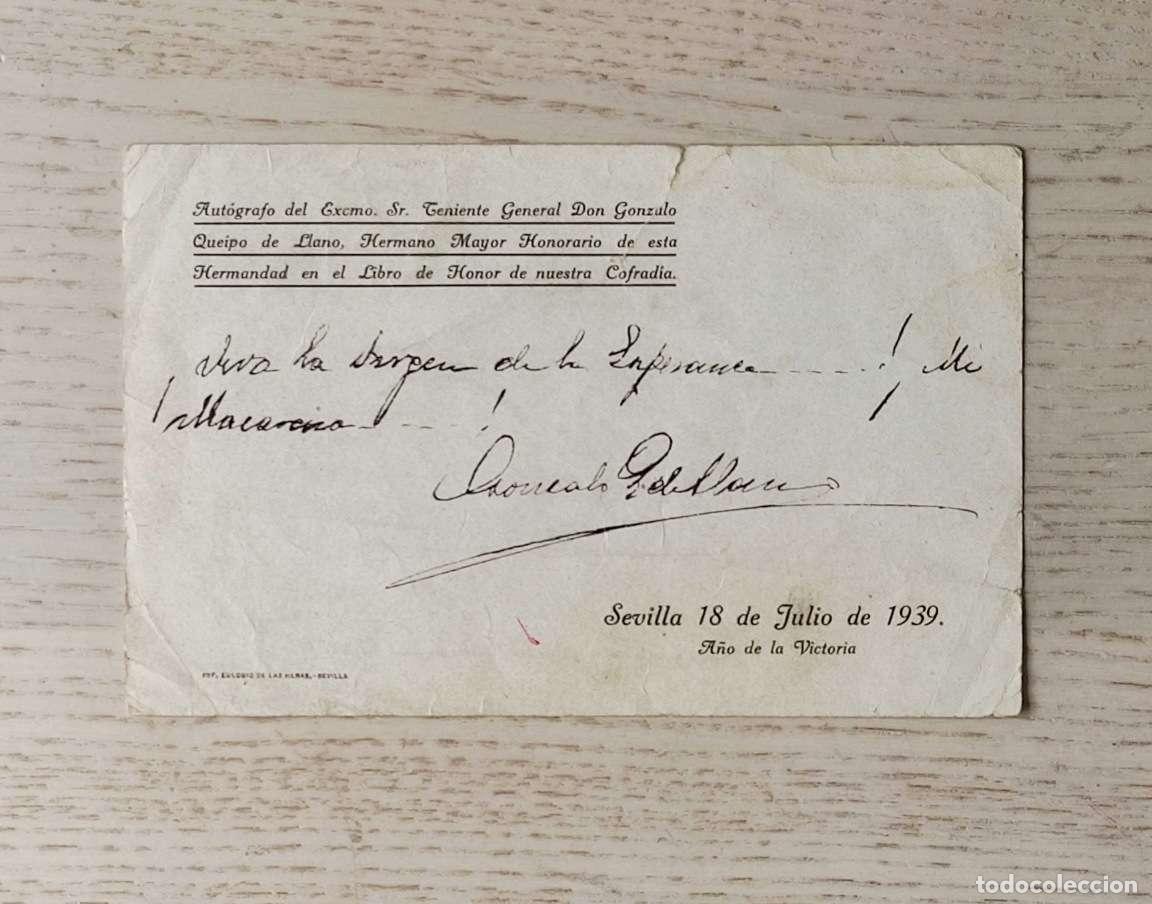 Autógrafo del Excmo. Sr. Teniente General Don Gonzalo
Queipo de Llano, Hermano Mayor Honorario de esta
Hermandad en el Libro de Honor de nuestra Cofradía.
Viva la Virgen de la Esperanza ----! Mi
¡Macarena ----!
Gonzalo Q de Llano
Sevilla 18 de Julio de 1939.
Año de la Victoria
IMP. EULOGIO DE LAS HERAS.-SEVILLA
todocoleccion